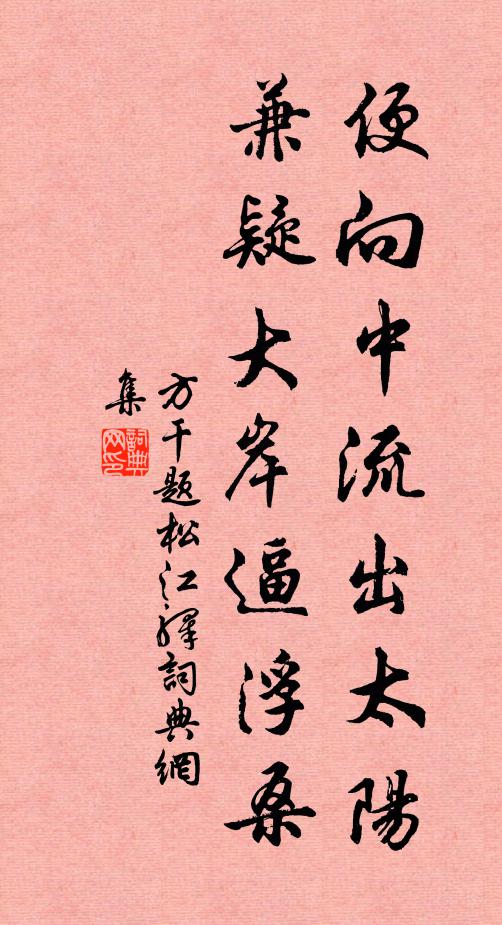 便向中流出太陽
兼疑大岸逼浮桑
方干題松江驛詞典網
集
詞典網印